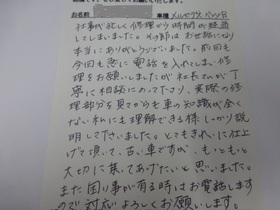 お名前 メルセデス・ベンツB
仕事が忙しく修理から時間が経過
してしまいました。その節はお世話になり
本当にありがとうございました。前回も
今回も急に電話を入れてしまい修
理をお願いしましたが社長さんが丁
寧に相談にのって下さり、実際の修
理部分を見てからも車の知識が全く
ない私にも理解できる様しっかり説
明して下さいました。とてもきれいに仕上
げて頂いて、古い車ですが、もっともっと
大切に乗ってあげたいと思いました。
また困り事が有る時はお電話します
ので対応よろしくお願いします。